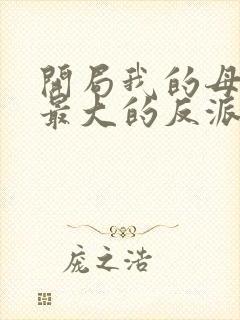 開局我的母
最大的反派
庞之浩